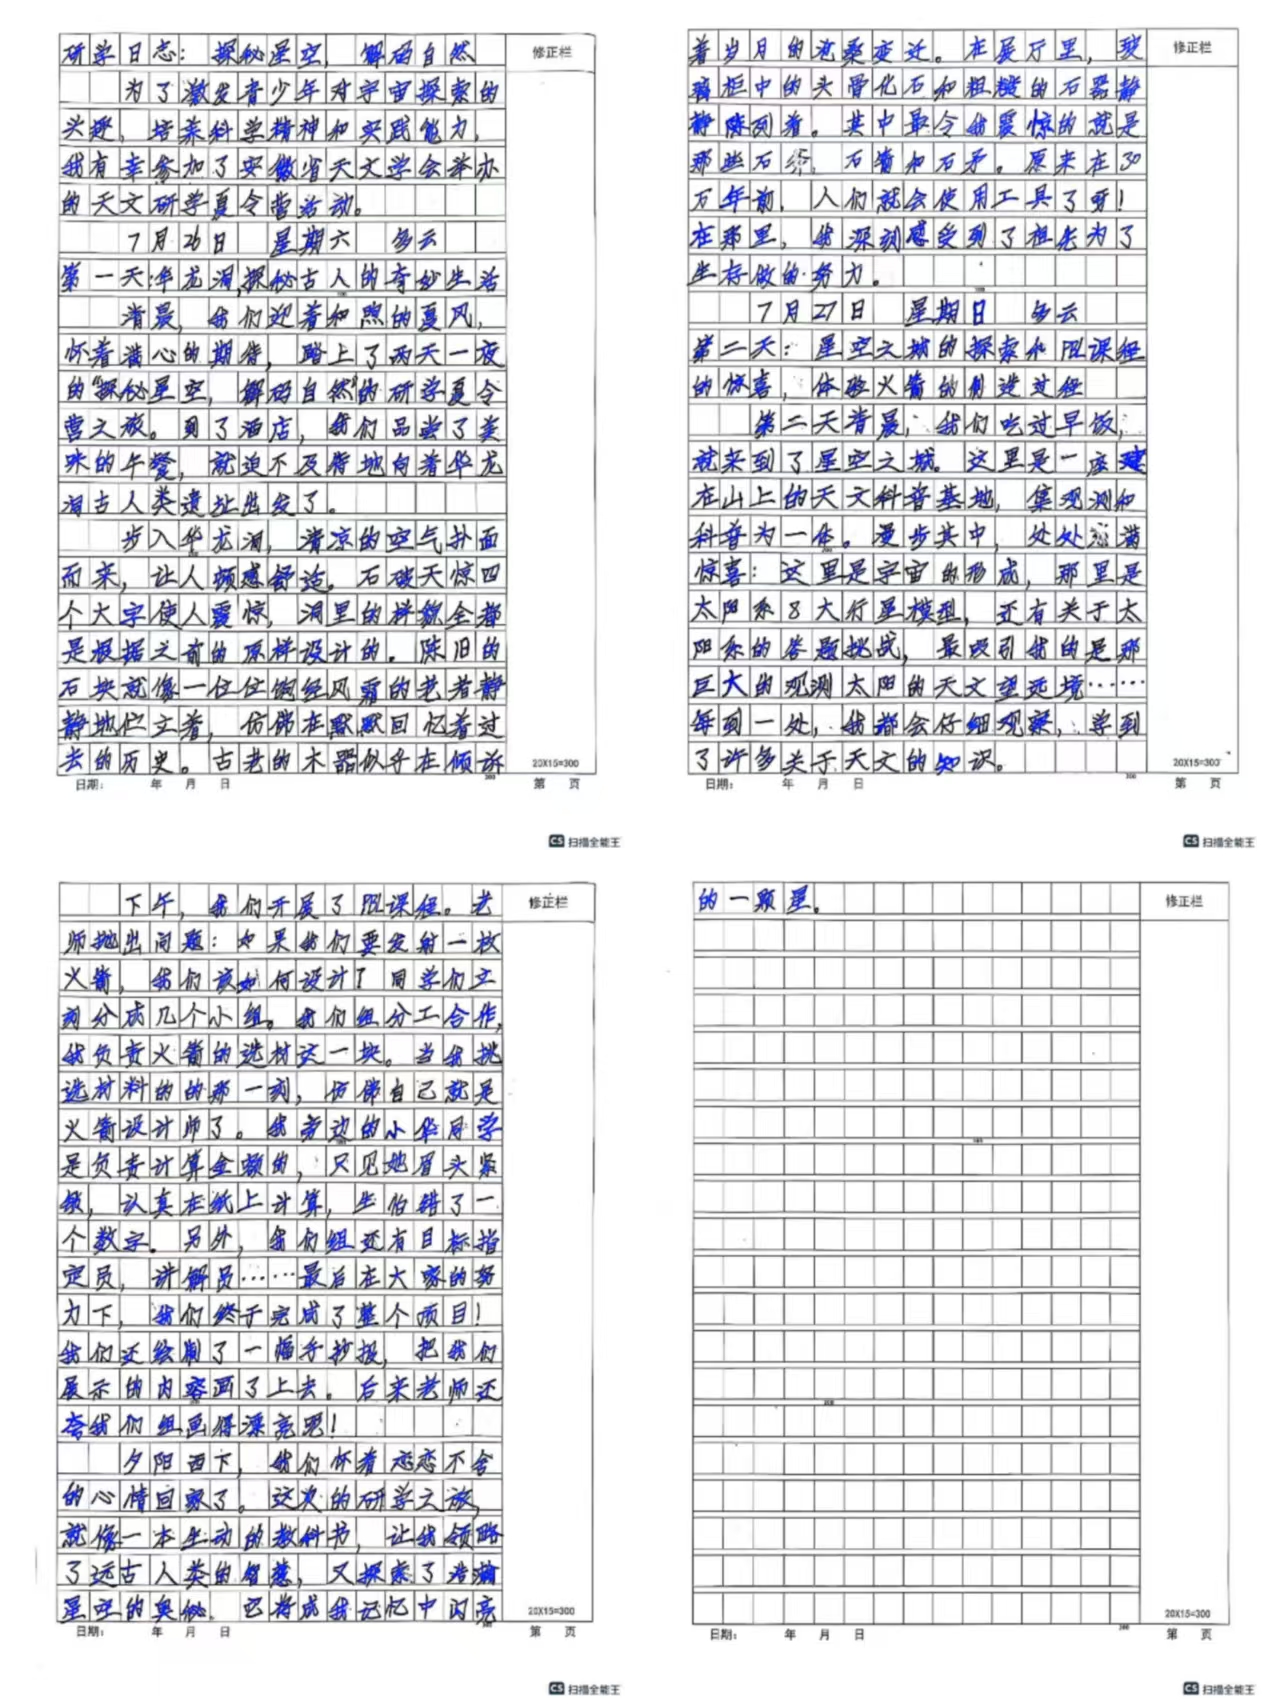 研学日志：探秘星空，解码自然
修正栏
为了激发青少年对宇宙探索的
兴趣，培养科学精神和实践能力，
我有幸参加了安徽省天文学会举办
的天文研学夏令营活动。
7月26日 星期六 多云
第一天：华龙洞，探秘古人的奇妙生活
清晨，我们迎着和煦的夏风，
怀着满心的期待，踏上了两天一夜
的“探秘星空，解码自然”的研学夏令
营之旅。到了酒店，我们品尝了美
味的午餐，就迫不及待地向着华龙
洞古人类遗址出发了。
步入华龙洞，清凉的空气扑面
而来，让人顿感舒适。石破天惊四
个大字使人震惊，洞里的样貌全都
是根据之前的原样设计的。陈旧的
石块就像一位位饱经风霜的老者静
静地伫立着，仿佛在默默回忆着过
去的历史。古老的木器似乎在倾诉
20X15=300
300
日期： 年 月 日 第 页
CS 扫描全能王
着岁月的沧桑变迁。在展厅里，玻
修正栏
璃柜中的头骨化石和粗糙的石器静
静陈列着。其中最令我震惊的就是
那些石 ，石凿和石矛。原来在30
万年前，人们就会使用工具了呀！
在那里，我深刻感受到了祖先为了
生存做的努力。
7月27日 星期日 多云
第二天：星空之城的探索和PBL课程
的惊喜，体验火箭的制造过程
第二天清晨，我们吃过早饭，
就来到了星空之城。这里是一座建
在山上的天文科普基地，集观测和
科普为一体。漫步其中，处处 满
惊喜：这里是宇宙的形成，那里是
太阳系8大行星模型，还有关于太
阳系的答题挑战，最吸引我的是那
巨大的观测太阳的天文望远境……
每到一处，我都会仔细观察，学到
了许多关于天文的知识。
20X15=300
300
日期： 年 月 日 第 页
CS 扫描全能王
下午，我们开展了PBL课程。老
修正栏
师抛出问题：如果我们要发射一枚
火箭，我们该如何设计？同学们立
刻分成几个小组。我们组分工合作，
我负责火箭的选材这一块。当我挑
选材料的的那一刻，仿佛自己就是
火箭设计师了。我旁边的小华同学
是负责计算金额的，只见她眉头紧
锁，认真在纸上计算，生怕错了一
个数字。另外，我们组还有目标指
定员，讲解员……最后在大家的努
力下，我们终于完成了整个项目！
我们还绘制了一幅手抄报，把我们
展示的内容画了上去。后来老师还
夸我们组画得漂亮呢！
夕阳西下，我们怀着恋恋不舍
的心情回家了。这次的研学之旅，
就像一本生动的教科书，让我领略
了远古人类的智慧，又探索了浩瀚
星空的奥秘。它将成我记忆中闪亮
20X15=300
300
日期： 年 月 日 第 页
CS 扫描全能王
的一颗星。
修正栏
100
200
20X15=300
300
日期： 年 月 日 第 页
CS 扫描全能王